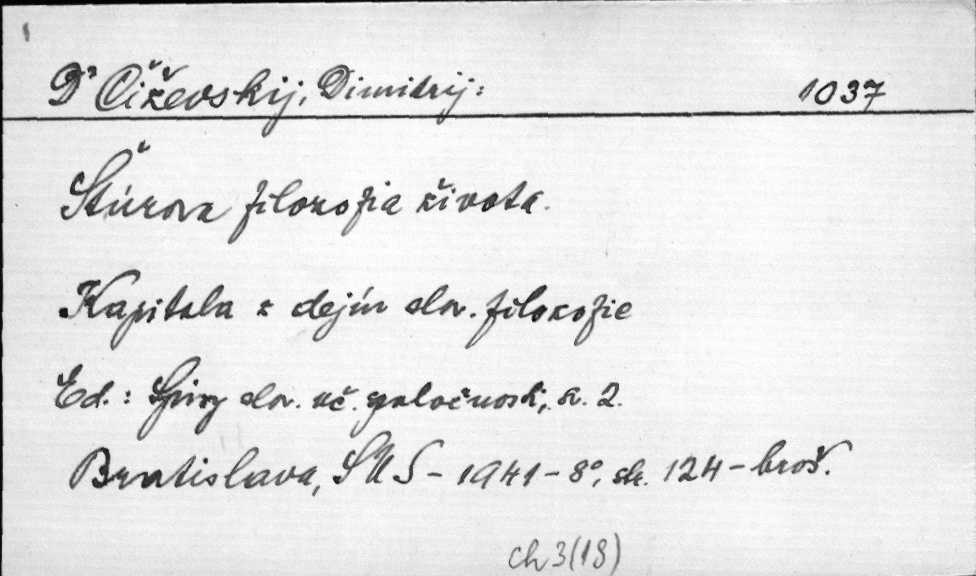 Dr Čiževskij, Dimitrij: 1037
Štúrova filozofia života.
Kapitola z dejín slov. filozofie
Ed.: Spisy slov. uč. spoločnosti, sv. 2.
Bratislava, SUS - 1941 - 8°, str. 124 - brož.
ch 3(18)